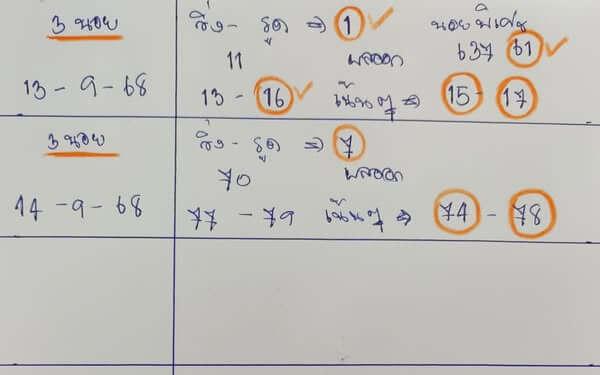 3 นอย วิ่ง - รูด ⇒ 1 ✓ นอยพิเศษ
11 637 61 ✓
13 - 9 - 68 13 - 16 ✓ เน้นๆ ⇒ 15 - 17
3 นอย วิ่ง - รูด ⇒ 7
70
14 - 9 - 68 77 - 79 เน้นๆ ⇒ 74 - 78